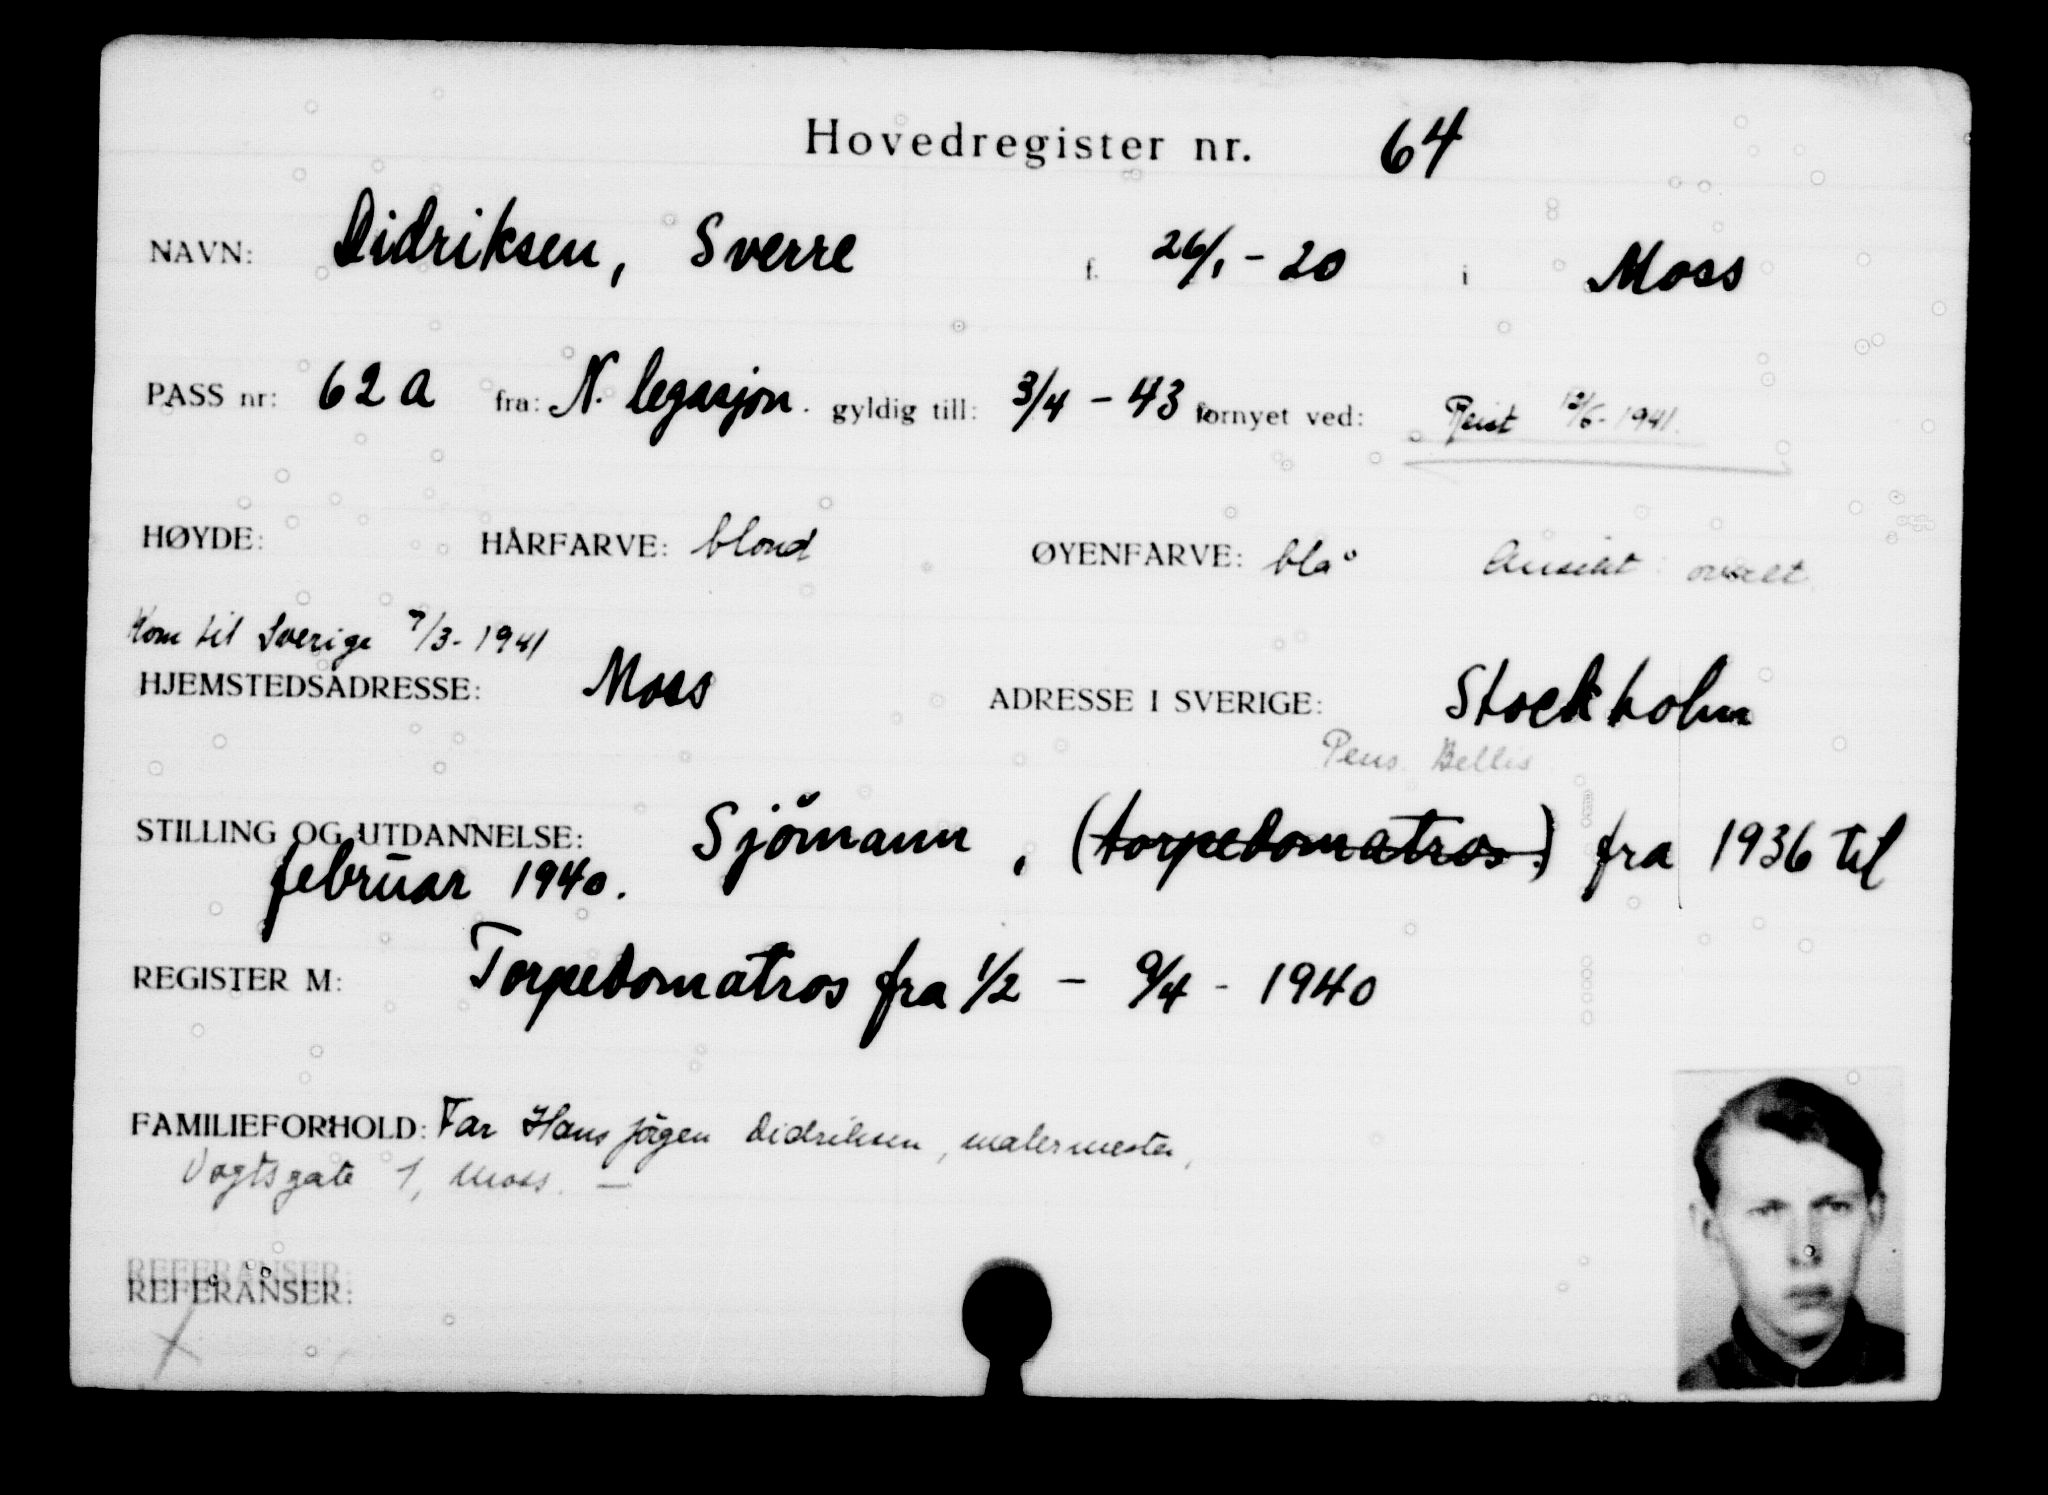 Hovedregister nr. 64
NAVN: Didriksen, Sverre f. 26/1 - 20 i Moss
PASS nr: 62 A fra: N. legasjon. gyldig till: 3/4 - 43 fornyet ved: Reist 12/6-1941.
HØYDE: HÅRFARVE: blond ØYENFARVE: blå Ansikt: ovalt
Kom til Sverige 7/3-1941
HJEMSTEDSADRESSE: Moss ADRESSE I SVERIGE: Stockholm
Pens. Bellis
STILLING OG UTDANNELSE: Sjömann, (torpedomatros.) fra 1936 til
februar 1940.
REGISTER M: Torpedomatros fra 1/2 - 9/4 - 1940
FAMILIEFORHOLD: Far Hans Jörgen Didriksen, malermester,
Vogtsgate 1, Moss. —
REFERANSER:
REFERANSER: